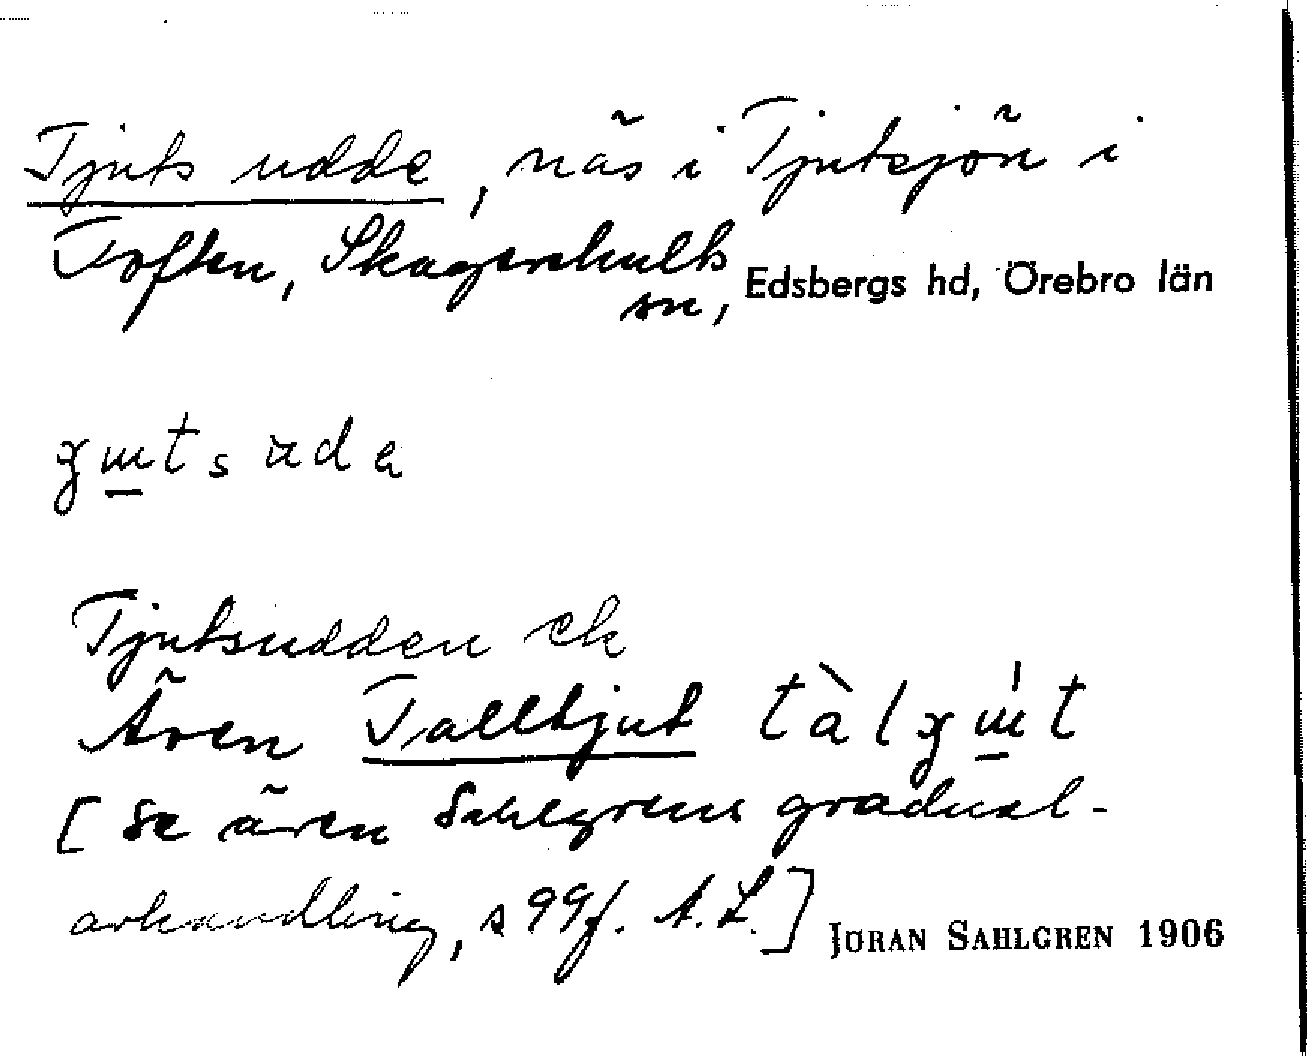 Tjuts udde, näs i Tjutsjön i
Toften, Skagershults
sn, Edsbergs hd, Örebro län
Tjutsudden ek
Även Talltjut
[Se även Sahlgrens gradual-
avhandling, s 99f. A.L.]
JÖRAN SAHLGREN 1906